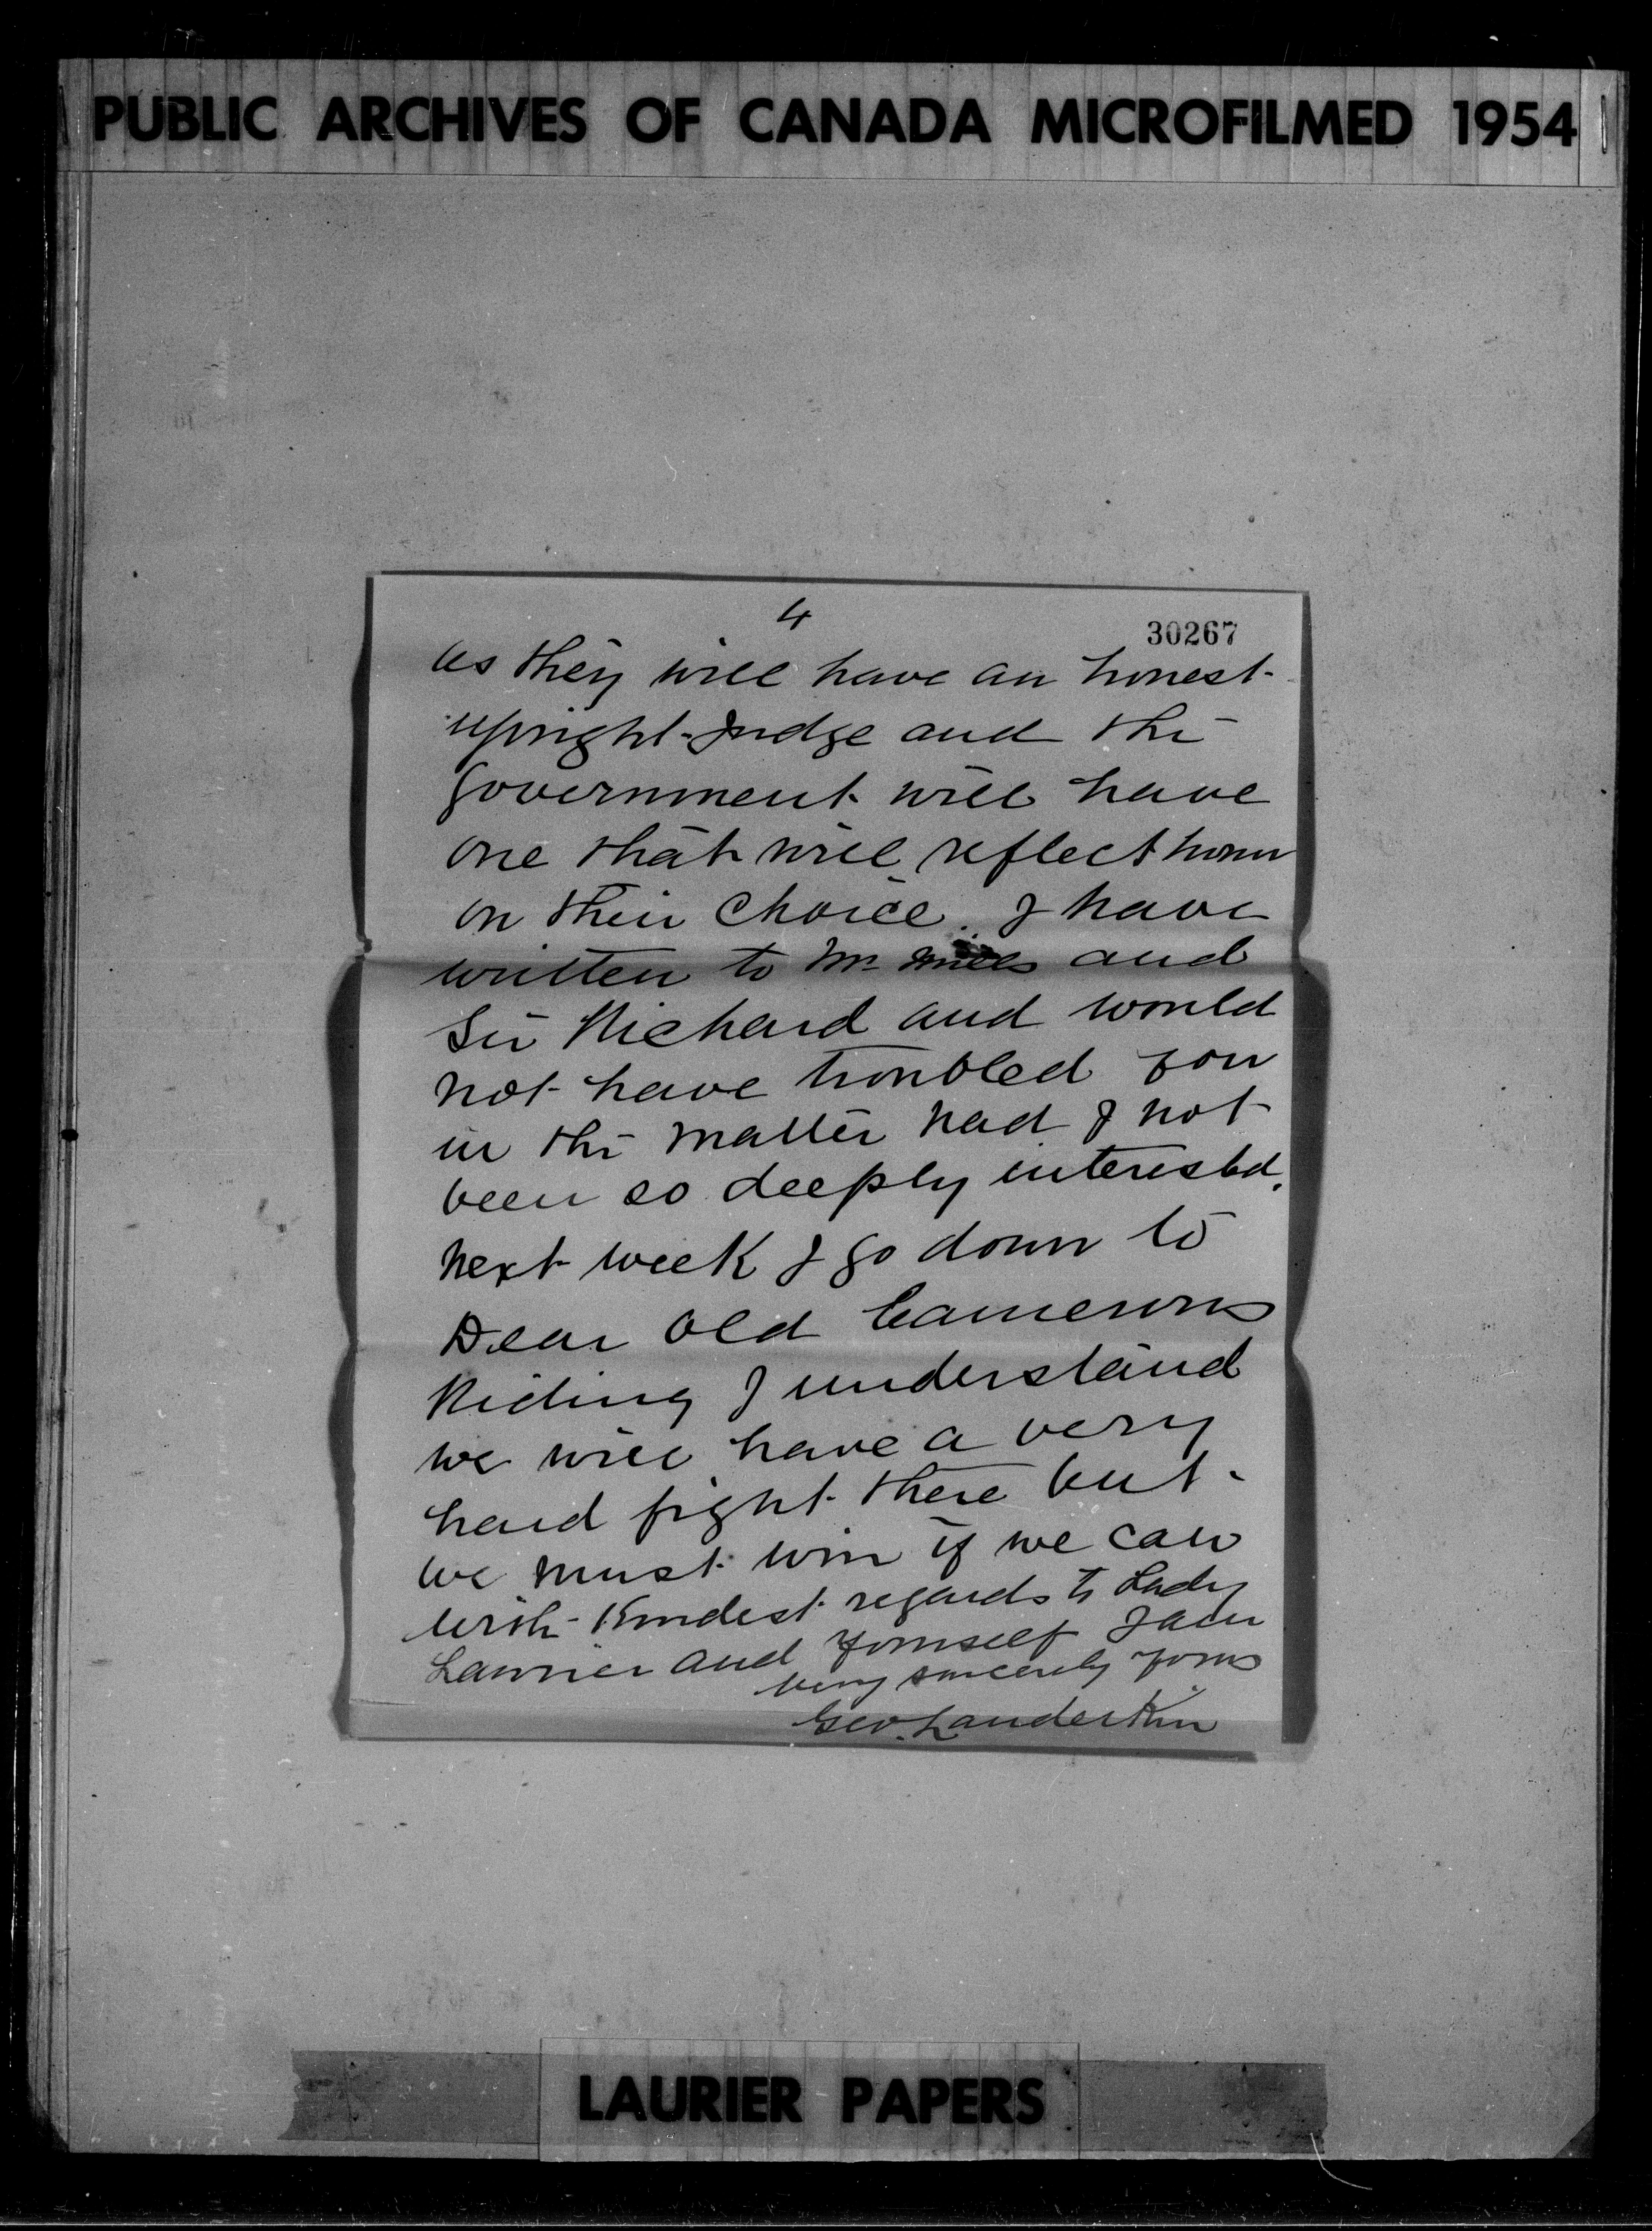 PUBLIC ARCHIVES OF CANADA MICROFILMED 1954
4
30267
as they will have an honest
upright Judge and the
Government will have
one that will reflect honor
on their choice. I have
written to Mr Mills and
Sir Richard and would
not have troubled you
in the matter had I not
been so deeply interested.
Next week I go down to
Dear Old Camerons
Riding I understand
we will have a very
hard fight there but
we must win if we can
with Kindest regards to Lady
Laurier and yourself I am
very sincerely yours
Geo. Landerkin
LAURIER PAPERS